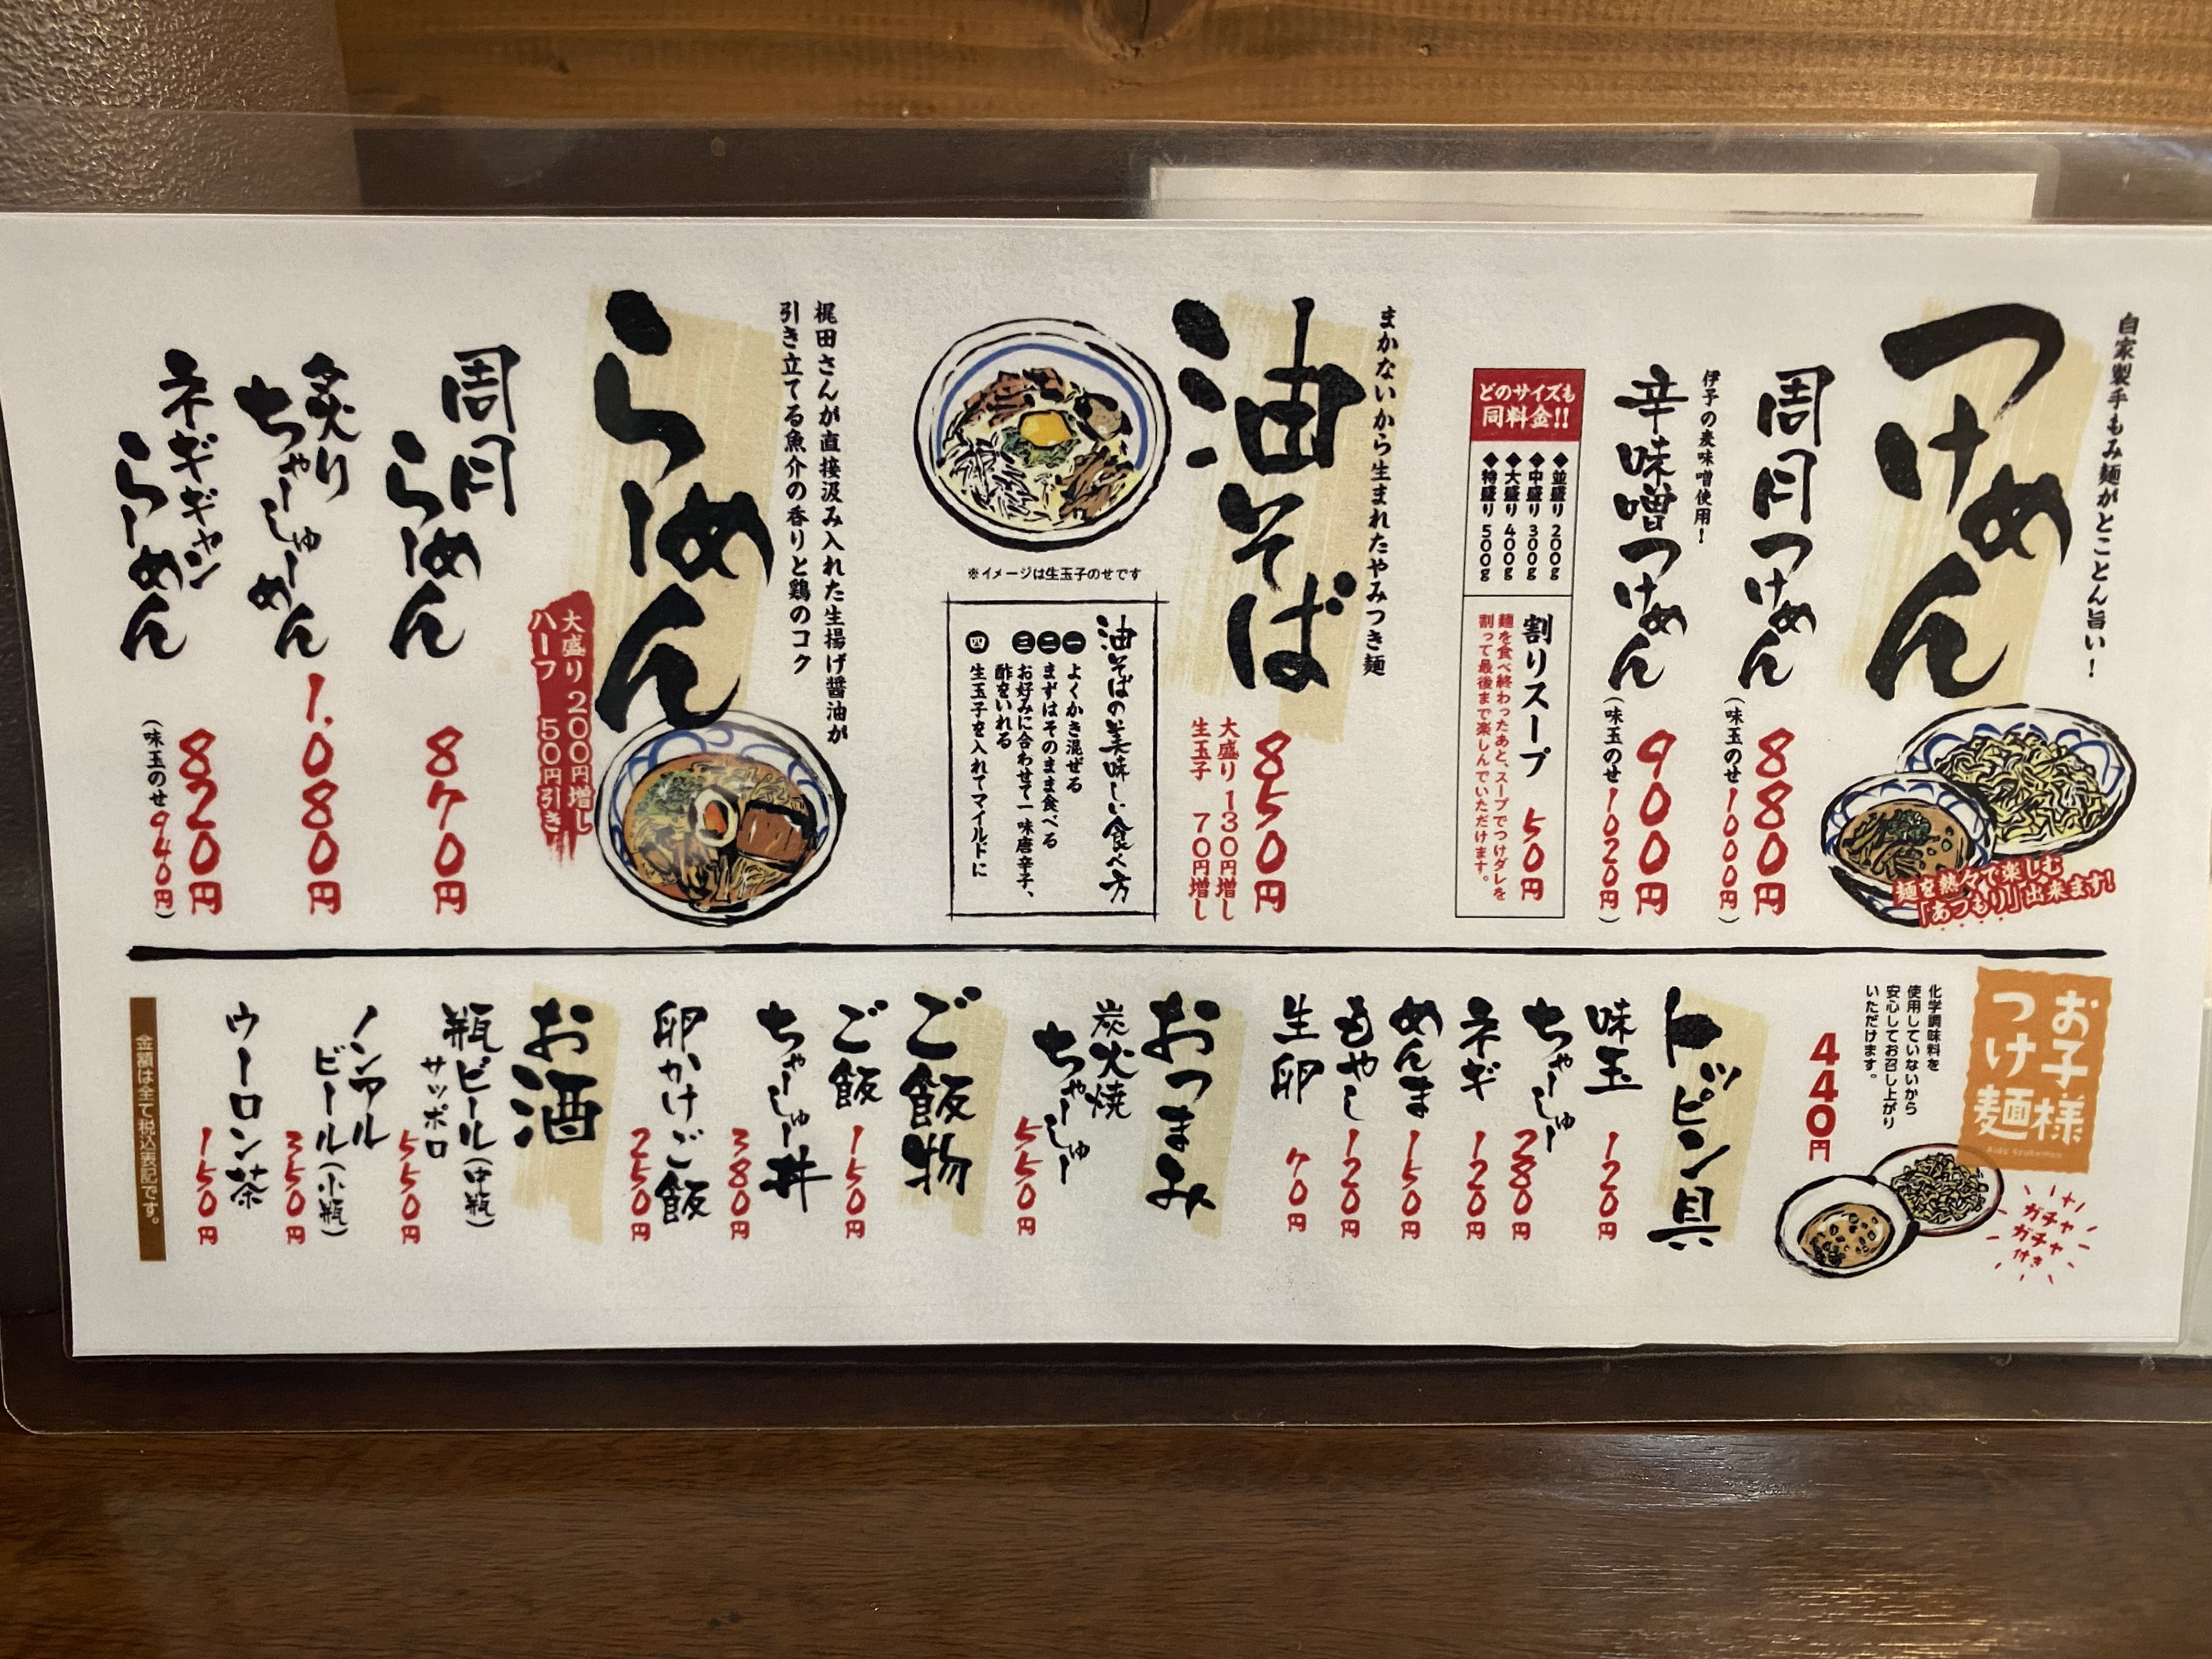 自家製手もみ麺がとことん旨い!
つけめん
麺を熱々で楽しむ
「あつもり」出来ます!
周月つけめん 880円
(味玉のせ1000円)
伊予の麦味噌使用!
辛味噌つけめん 900円
(味玉のせ1020円)
どのサイズも
同料金!!
◆並盛り 200g
◆中盛り 300g
◆大盛り 400g
◆特盛り 500g
割りスープ 50円
麺を食べ終わったあと、スープでつけダレを
割って最後まで楽しんでいただけます。
まかないから生まれたやみつき麺
油そば 850円
大盛り 130円増し
生玉子 70円増し
※イメージは生玉子のせです
油そばの美味しい食べ方
一 よくかき混ぜる
二 まずはそのまま食べる
三 お好みに合わせて一味唐辛子、
酢をいれる
四 生玉子を入れてマイルドに
梶田さんが直接汲み入れた生揚げ醤油が
引き立てる魚介の香りと鶏のコク
らぁめん
大盛り 200円増し
ハーフ 50円引き
周月らぁめん 870円
炙りちゃーしゅーめん 1.080円
ネギギャンらーめん 820円
(味玉のせ940円)
お子様
つけ麺
Kids tsukemen
ガチャ
ガチャ
付き
化学調味料を
使用していないから
安心してお召し上がり
いただけます。
440円
トッピン具
味玉 120円
ちゃーしゅー 280円
ネギ 120円
めんま 150円
もやし 120円
生卵 70円
おつまみ
炭火焼ちゃーしゅー 550円
ご飯物
ご飯 150円
ちゃーしゅー丼 380円
卵かけご飯 250円
お酒
瓶ビール(中瓶)
サッポロ 550円
ノンアル
ビール(小瓶) 350円
ウーロン茶 150円
金額は全て税込表記です。